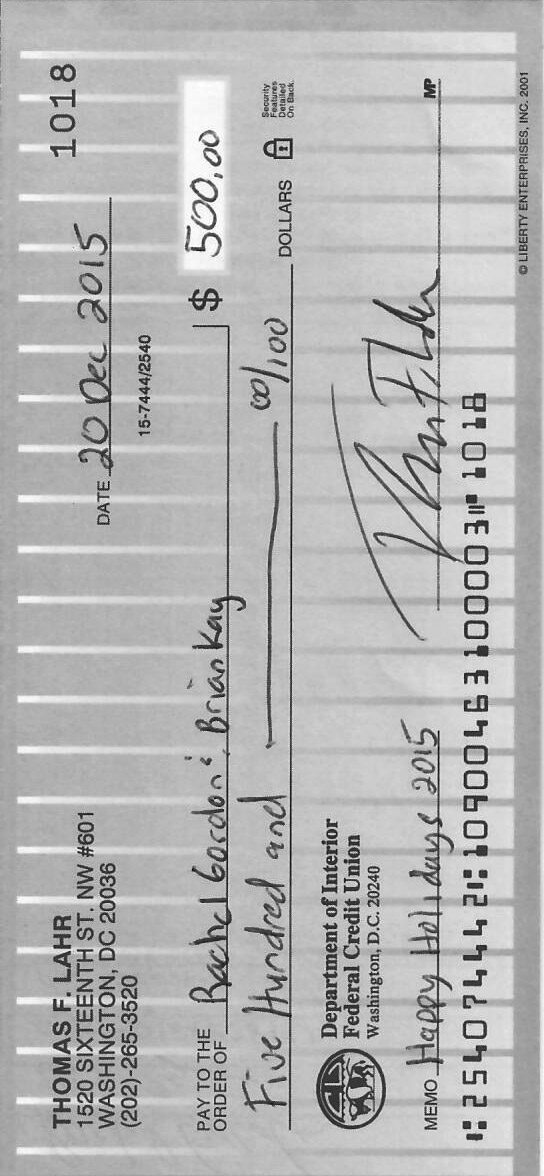 THOMAS F. LAHR
1520 SIXTEENTH ST. NW #601
WASHINGTON, DC 20036
(202)-265-3520
1018
DATE 20 Dec 2015
15-7444/2540
PAY TO THE
ORDER OF Rachel Gordon & Brian Kay $ 500.00
Five Hundred and 00/100 DOLLARS
Security
Features
Detailed
On Back.
Department of Interior
Federal Credit Union
Washington, D.C. 20240
MEMO Happy Holidays 2015
Thomas F. Lahr
MP
⑆254074442⑆10900463100003⑈1018
© LIBERTY ENTERPRISES, INC. 2001